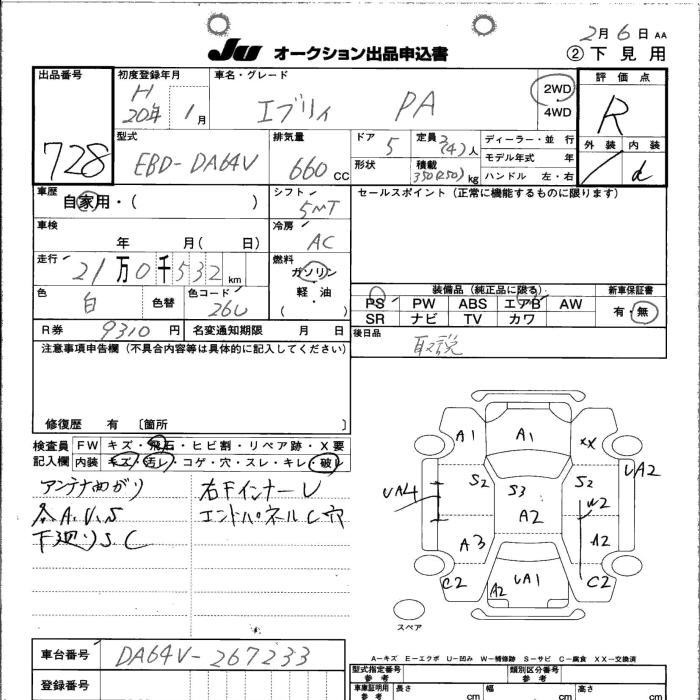 2月6日 AA
JU オークション出品申込書 ②下見用
出品番号 初度登録年月 車名・グレード 評価点
728 H 20年 1月 エブリィ PA 2WD 4WD R
外装 内装
d
型式 排気量 ドア 定員 人 ディーラー・並行
EBD-DA64V 660cc 5 2(4)
モデル年式 年
形状 積載 350(250)kg ハンドル 左・右
車歴 自家用・( ) シフト 5MT セールスポイント (正常に機能するものに限ります)
車検 年 月( 日) 冷房 AC
走行 21万0千532km 燃料 ガソリン 軽油 ( ・ )
色 白 色替 色コード 26U
装備品 (純正品に限る) 新車保証書
PS PW ABS エアB AW 有・無
SR ナビ TV カワ
R券 9310円 名変通知期限 月 日 後日品 取説
注意事項申告欄 (不具合内容等は具体的に記入してください)
修復歴 有 〔箇所 〕
検査員 FW キズ・飛石・ヒビ割・リペア跡・X要
記入欄 内装 キズ・汚レ・コゲ・穴・スレ・キレ・破レ
アンテナめがり 右Fインナーレ
各A.U.S エンドパネルC穴
下廻りS.C
A1 A1 XX
UA2
UA4 S2 S3 S2
A2 W2
A3 A2
C2 A2 UA1 C2
スペア
A-キズ E-エクボ U-凹み W-補修跡 S-サビ C-腐食 XX-交換済
車台番号 DA64V-267233
登録番号
型式指定番号 参考 類別区分番号 参考
車庫証明用 参考 長さ cm 幅 cm 高さ cm